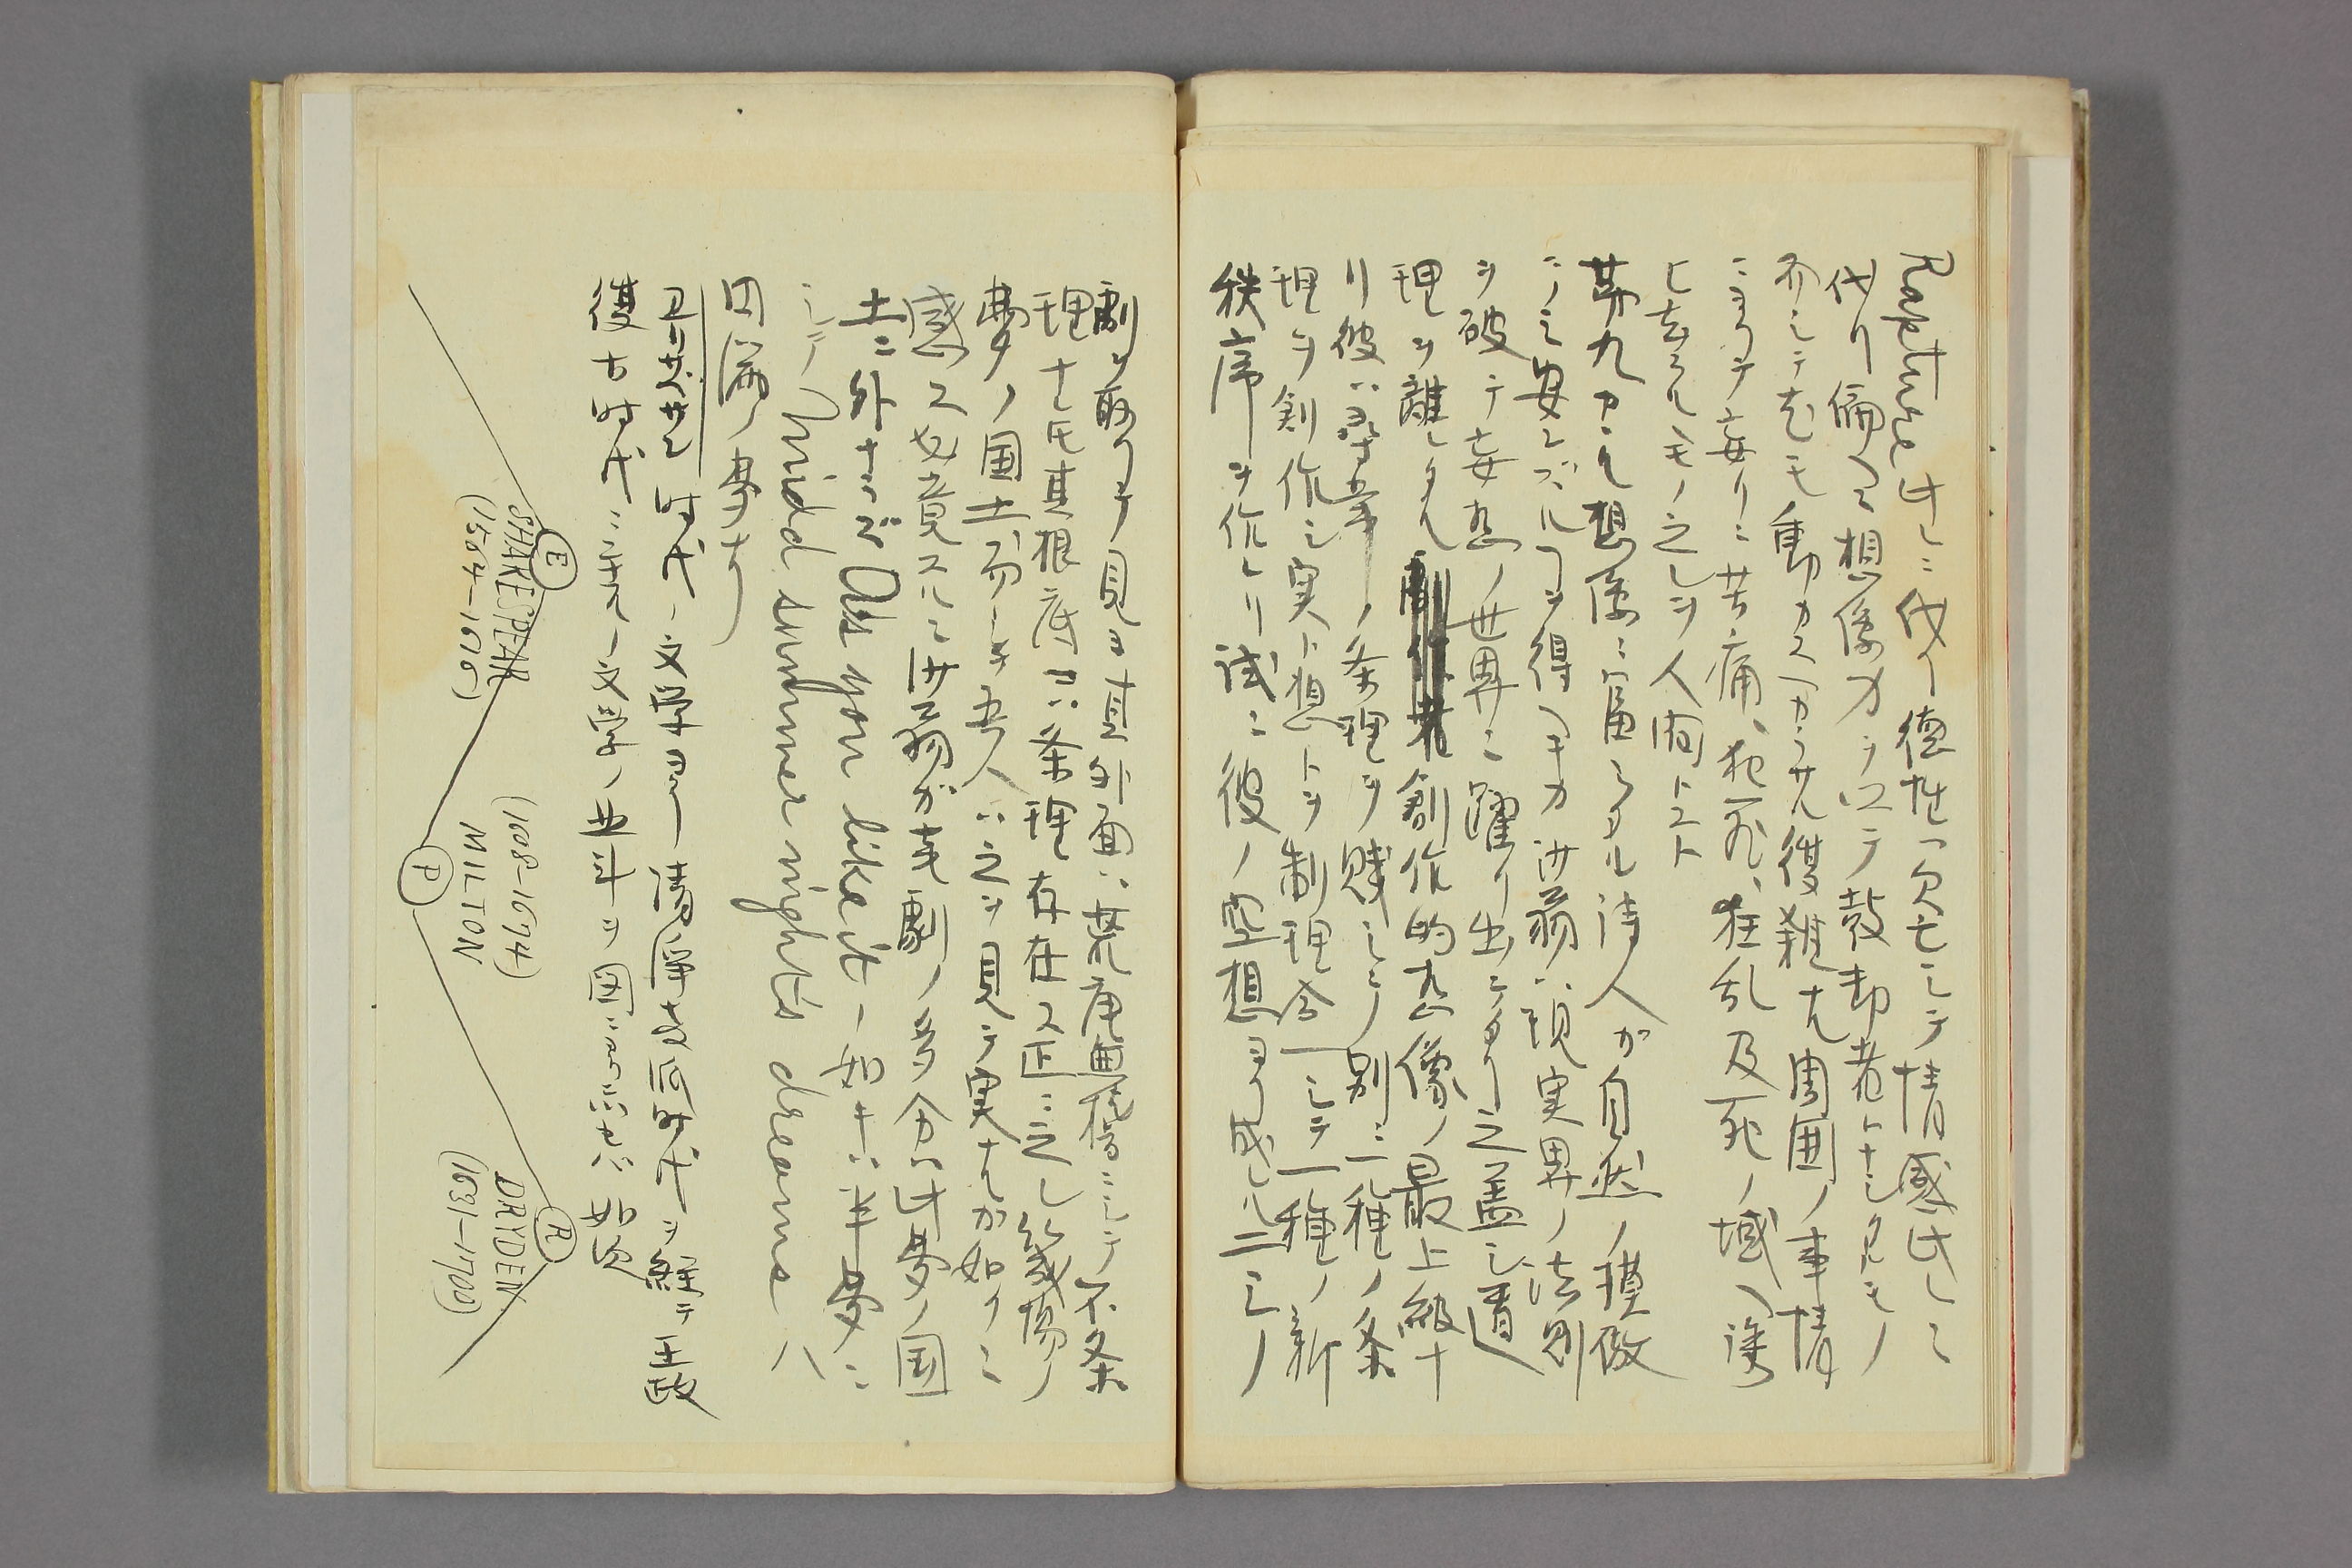 Rapture ニ代リ徳性ノ欠乏ニシテ情感ニ
代リ偏ヘニ想像力ヲ以テ鼓動者トナシタルモノ
而シテ尤モ動カスヘカラサル複雑ナル周囲ノ事情
ニヨリテ妄リニ苦痛、犯罪、狂乱及死ノ域ヘ誘
ヒ去ラルモノ之レヲ人間トスト
勘九カゝル想像ニ富ミタル詩人が自然ノ模倣
ニノミ安ンズルヿヲ得ヘキカ沙翁ハ現実界ノ法則
ヲ破テ妄想ノ世界ニ躍リ出ニタリ之蓋シ道
理ヲ離レタル創作的想像ノ最上級ナ
リ彼ハ尋常ノ条理ヲ賤シミ別ニ一種ノ条
理ヲ創作シ実ト想トヲ制理合一シテ一種ノ新
秩序ヲ作レリ試ニ彼ノ空想ヨリ成レル二三ノ
劇ヲ取リテ見ヨ其外面ハ荒唐無稽ニシテ不条
理ナルモ其根底ニハ条理存在ス正ニ之レ幾場ノ
夢ノ国土而シテ吾人ハ之ヲ見テ実ナルカ如クニ
感ス如意スルニ沙翁が喜劇ノ多分ハ此夢ノ国
土ニ外ナラズ As you like it ノ如キハ半夢ニ
シテ Mid summer night's dreams ハ
円満ノ夢ナリ
時代ノ文学ヨリ清浄教徒時代ヲ経テ王政
復古時代ニ至ル文学ノ曲斗ヲ図ニ示セバ如次
E
SHAKESPEAR
(1564–1616)
(1608–1674)
MILTON
P
R
DRYDEN
(1631–1700)